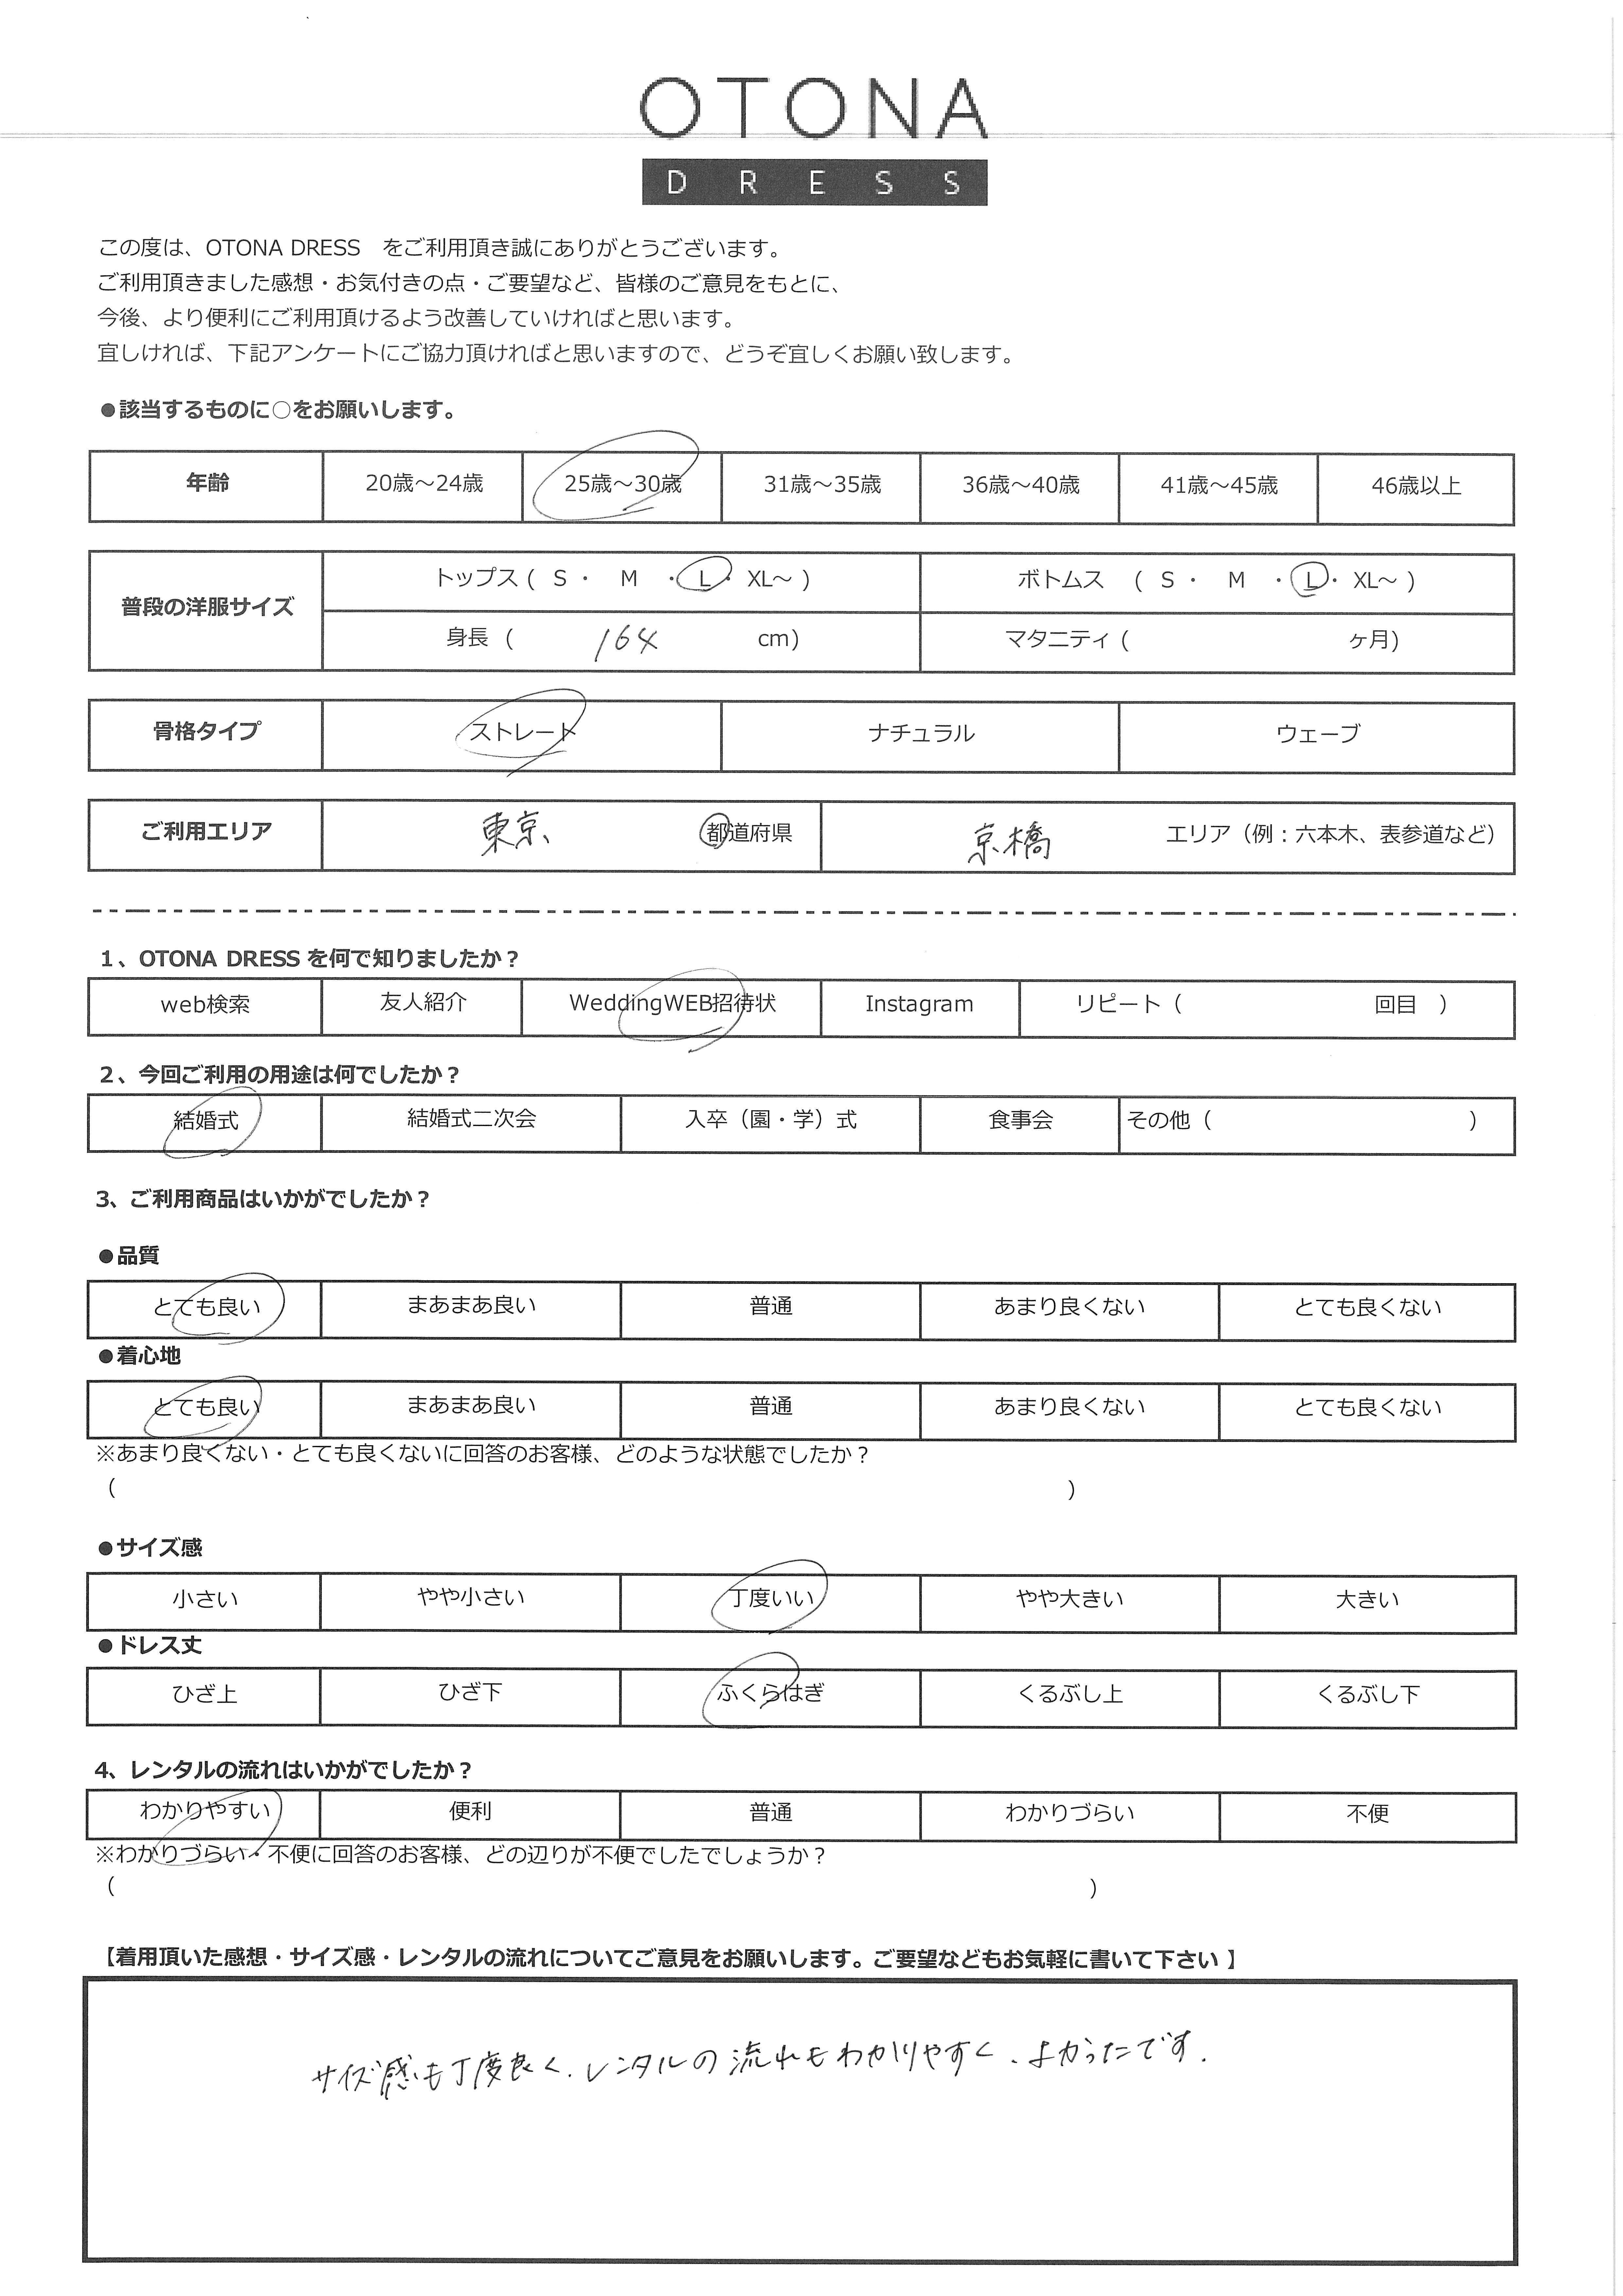 OTONA
DRESS
この度は、OTONA DRESS　をご利用頂き誠にありがとうございます。
ご利用頂きました感想・お気付きの点・ご要望など、皆様のご意見をもとに、
今後、より便利にご利用頂けるよう改善していければと思います。
宜しければ、下記アンケートにご協力頂ければと思いますので、どうぞ宜しくお願い致します。
●該当するものに○をお願いします。
年齢 20歳～24歳 25歳～30歳 31歳～35歳 36歳～40歳 41歳～45歳 46歳以上
普段の洋服サイズ トップス ( S ・ M ・ L ・ XL～ ) ボトムス ( S ・ M ・ L ・ XL～ )
身長 ( 164 cm) マタニティ ( ヶ月)
骨格タイプ ストレート ナチュラル ウェーブ
ご利用エリア 東京、 都道府県 京橋 エリア（例：六本木、表参道など）
1、OTONA DRESS を何で知りましたか？
web検索 友人紹介 WeddingWEB招待状 Instagram リピート（ 回目 ）
2、今回ご利用の用途は何でしたか？
結婚式 結婚式二次会 入卒（園・学）式 食事会 その他（ ）
3、ご利用商品はいかがでしたか？
●品質
とても良い まあまあ良い 普通 あまり良くない とても良くない
●着心地
とても良い まあまあ良い 普通 あまり良くない とても良くない
※あまり良くない・とても良くないに回答のお客様、どのような状態でしたか？
（ ）
●サイズ感
小さい やや小さい 丁度いい やや大きい 大きい
●ドレス丈
ひざ上 ひざ下 ふくらはぎ くるぶし上 くるぶし下
4、レンタルの流れはいかがでしたか？
わかりやすい 便利 普通 わかりづらい 不便
※わかりづらい・不便に回答のお客様、どの辺りが不便でしたでしょうか？
（ ）
【着用頂いた感想・サイズ感・レンタルの流れについてご意見をお願いします。ご要望などもお気軽に書いて下さい 】
サイズ感も丁度良く、レンタルの流れもわかりやすく、よかったです。